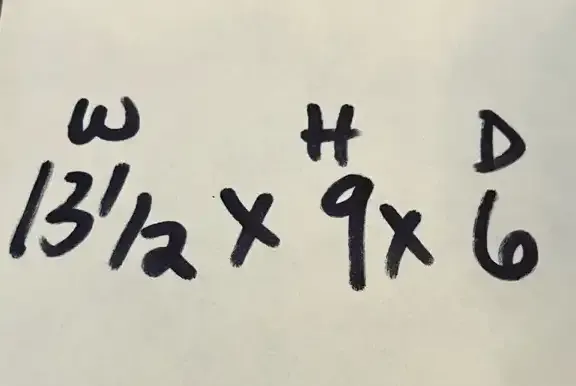 W H D
13 1/2 x 9 x 6